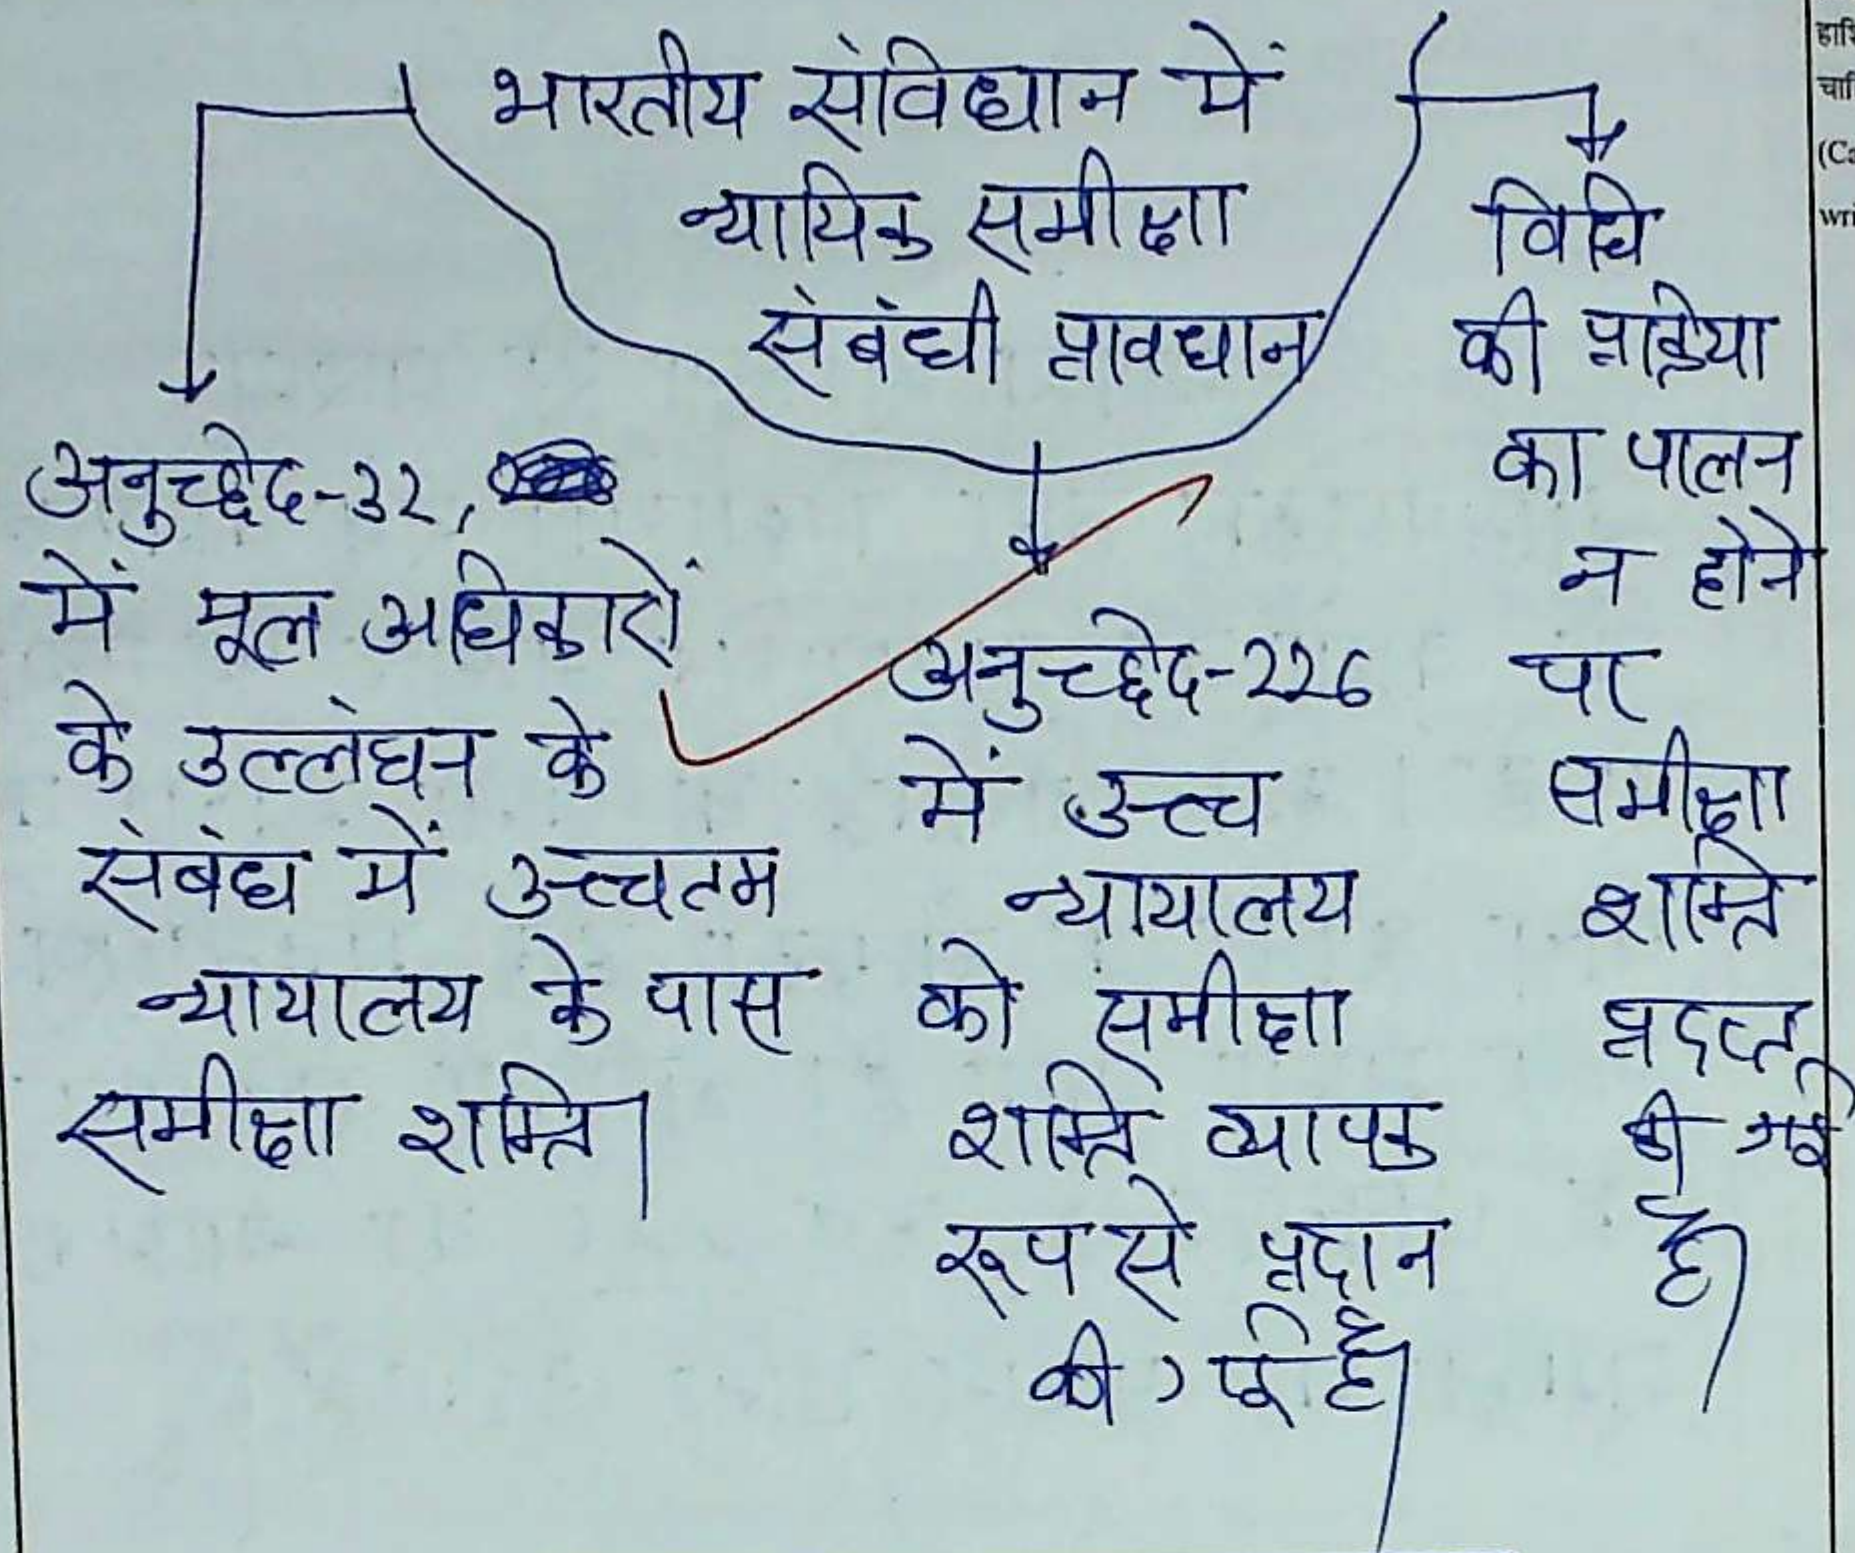 भारतीय संविधान में
न्यायिक समीक्षा
संबंधी प्रावधान
अनुच्छेद-32,
में मूल अधिकारों
के उल्लंघन के
संबंध में उच्चतम
न्यायालय के पास
समीक्षा शक्ति।
अनुच्छेद-226
में उच्च
न्यायालय
को समीक्षा
शक्ति व्यापक
रूप से प्रदान
की गई है।
विधि
की प्रक्रिया
का पालन
न होने
पर
समीक्षा
शक्ति
प्रदत्त
की गई
है।
(Ca
wri